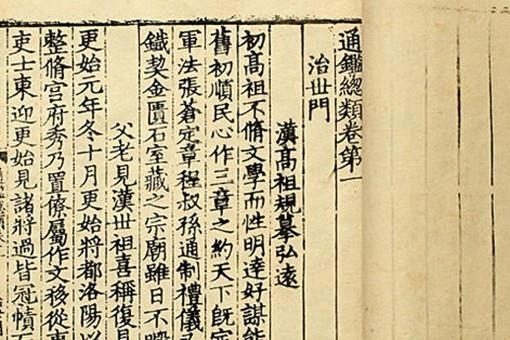 通鑑總類卷第一
治丗門
漢高祖規摹弘遠
初高祖不脩文學而性明達好謀能
舊初順民心作三章之約天下旣定
軍法張蒼定章程叔孫通制禮儀又
鐵契金匱石室藏之宗廟雖日不暇
父老見漢丗祖喜稱復見
更始元年冬十月更始將都洛陽以
整脩宮府秀乃置僚屬作文移從事
吏士東迎更始見諸將過皆冠幘